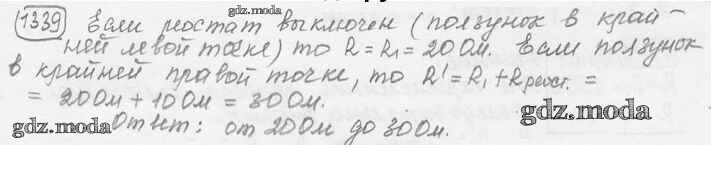 gdz.moda
1339 Если реостат выключен (ползунок в край-
ней левой точке) то R = R₁ = 20 Ом. Если ползунок
в крайней правой точке, то R' = R₁ + R реост. =
= 20 Ом + 10 Ом = 30 Ом.
gdz.moda
gdz.moda Ответ: от 20 Ом до 30 Ом.